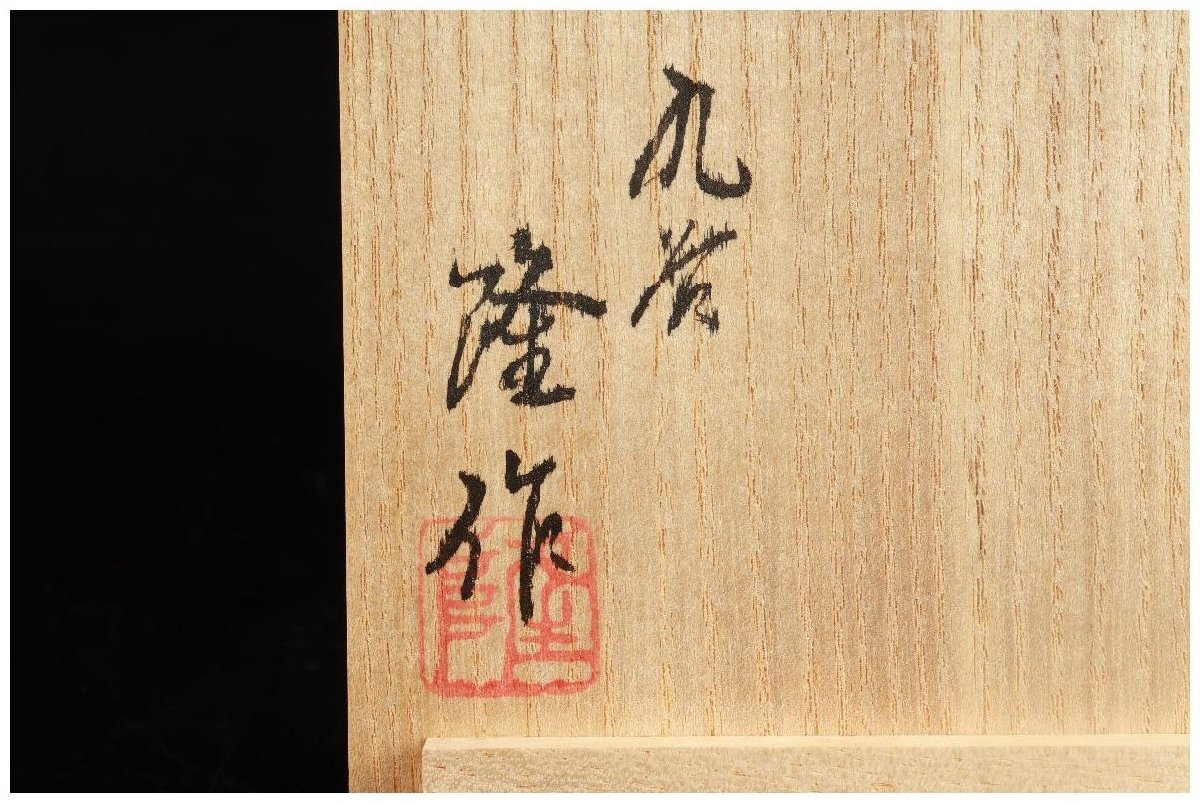 九谷
隆作